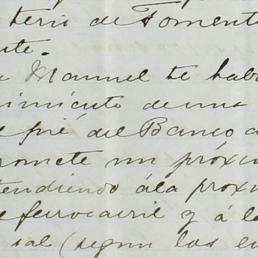 terio de Fomento
nte.
Manuel te hab
imiento de una
pié del Banco
romete un próxi
tendiendo á la proxi
ferrocarril y á l
sal (segun las e